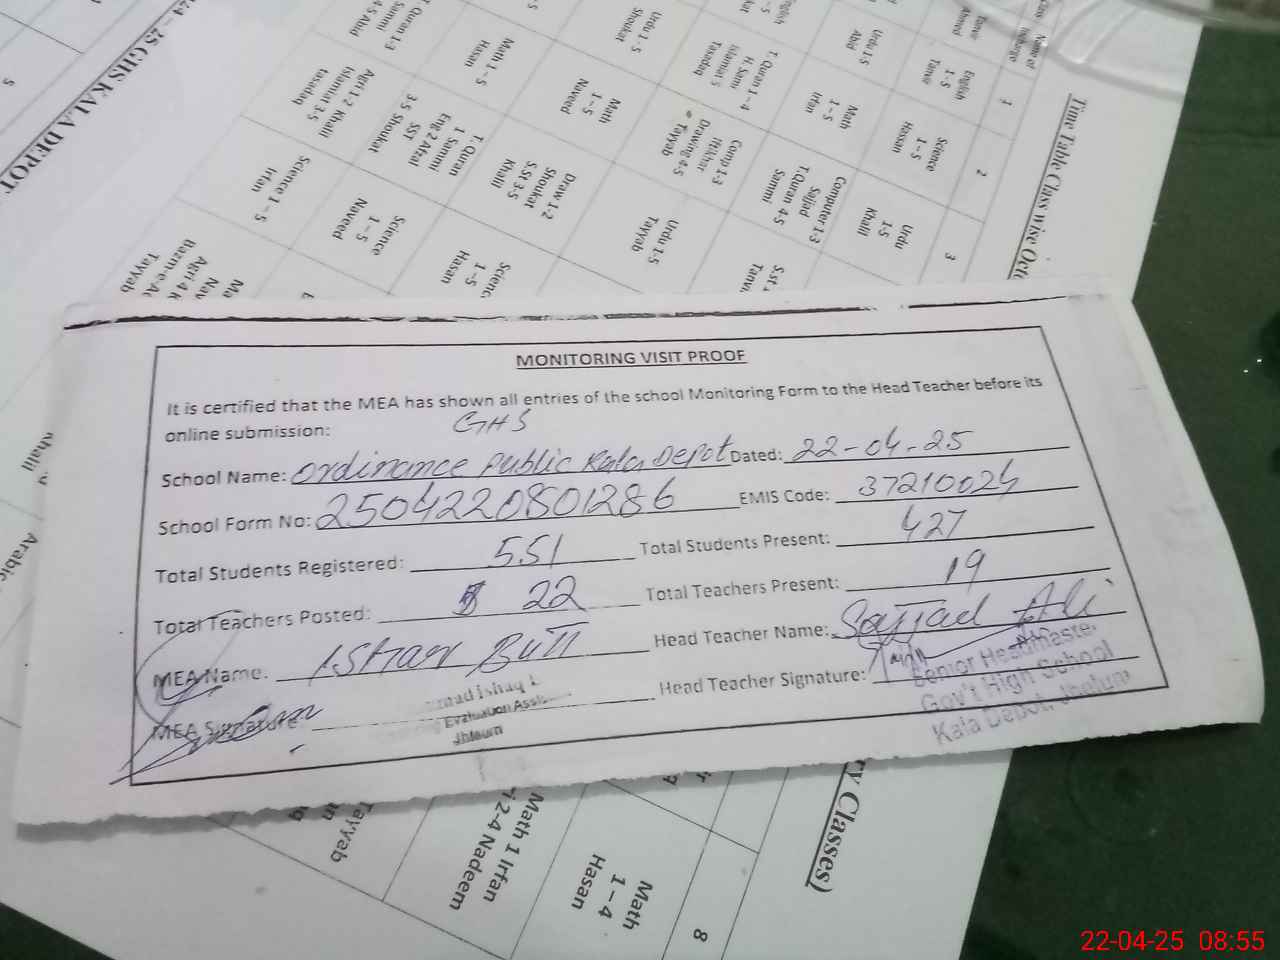 MONITORING VISIT PROOF
It is certified that the MEA has shown all entries of the school Monitoring Form to the Head Teacher before its
online submission:
GHS
School Name: Ordinance Public Kala Depot Dated: 22-04-25
School Form No: 2504220801286 EMIS Code: 37210024
Total Students Registered: 551 Total Students Present: 427
Total Teachers Posted: 22 Total Teachers Present: 19
MEA Name: Head Teacher Name: Sajjad Ali
MEA Signature Head Teacher Signature:
Evaluation
Jhleum
Senior Headmaste
Gov't High School
Kala Depot, Jhelum
24-25 GHS KALA DEPOT
Time Table Class wise
Name of
1
2
3
English
1-5
Tanvir
Science
1-5
Hassan
Urdu
1-5
Khalil
Urdu 1-5
Abid
Math
1-5
Irfan
Computer 1-3
Sajjad
T.Quran 4-5
Sammi
T. Quran 1-4
H. Sami
Tasadaq
Comp 1-3
Drawing 4-5
Tayyab
Urdu 1-5
Shoukat
Math
1-5
Naveed
Urdu 1-5
Tayyab
Draw 1-2
Shoukat
S.St 3-5
Khalil
Math 1-5
Hasan
T. Quran
1 Sammi
Eng 2 Afzal
SST
3-5 Shoukat
Science
1-5
Naveed
T. Quran 1-3
Sammi
4-5 Abid
Agri 1-2 Khalil
Islamiat 3-5
tasadaq
Science 1-5
Irfan
Tayyab
1-5
Hasan
Khalil
Arabic
ry Classes)
Tayyab
Math 1 Irfan
2-4 Nadeem
Math
1-4
Hasan
8
22-04-25 08:55